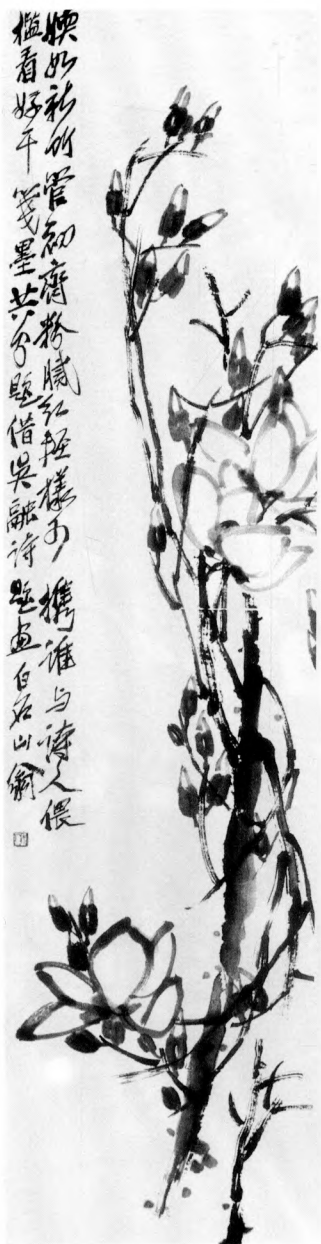 嫩如新竹管初齊粉膩紅輕樣可攜誰与詩人偎
檻看好于箋墨共分題借吳融詩題畫白石山翁